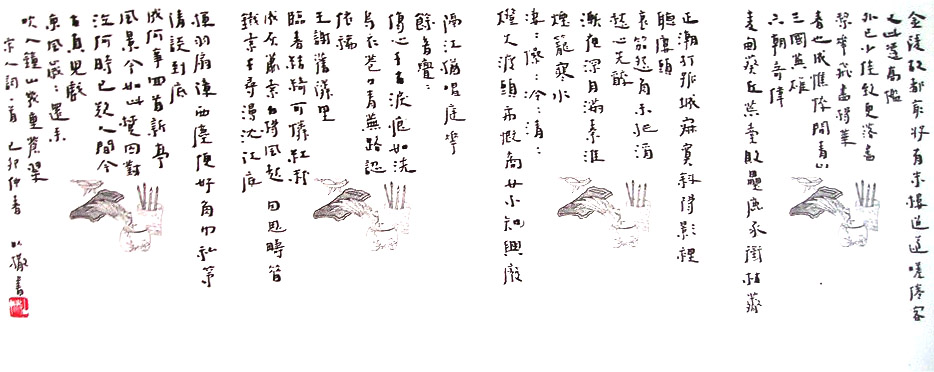 金陵故都最好有朱樓迢遞嗟倦客
又此憑高檻
外已少佳致更落盡
梨華飛盡楊華
春也成憔悴問青山
三國英雄
六朝奇偉
麥甸葵丘荒臺敗壘鹿豕銜枯薺
正潮打孤城寂寞斜陽影裡
聽樓頭
哀笳怨角未把酒
愁心先醉
漸夜深月滿秦淮
煙籠寒水
淒:慘:冷:清:
燈火渡頭市慨商女不知興廢
隔江猶唱庭華
餘音亹:
傷心千古淚痕如洗
烏衣巷口青蕪路認
依稀
王謝舊鄰里
臨春結綺可憐紅粉
成灰蕭索白楊風起 因思疇昔
鐵索千尋漫沈江底
揮羽扇障西塵便好角巾私第
清談到底
成何事回首新亭
風景今如此楚囚對
泣何時已歎人間今
古真兒戲
東風歲:還來
吹入鐘山幾重蒼翠
宋人詞一首 己卯仲春 書